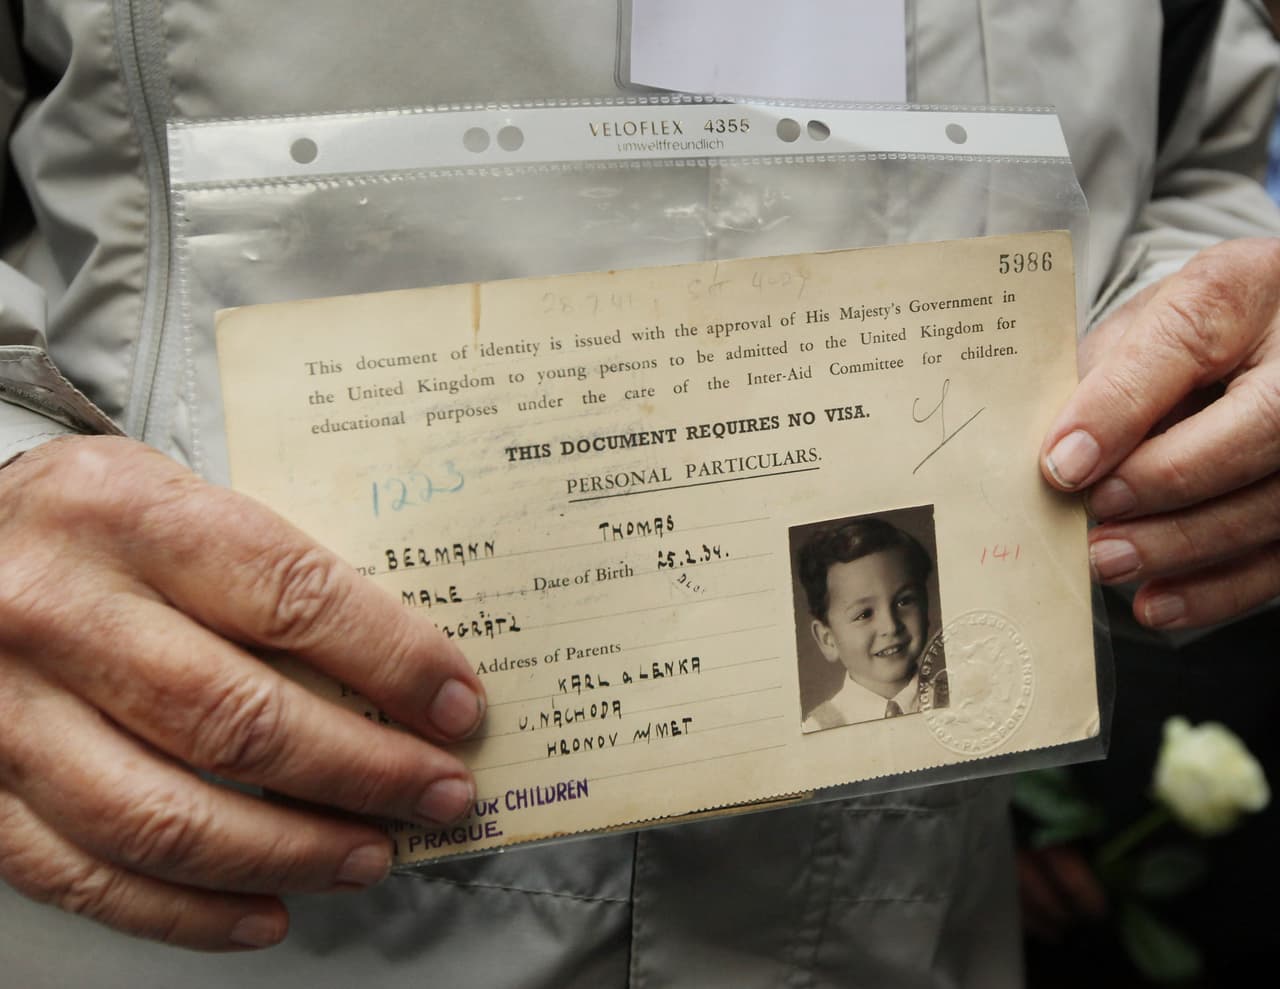 VELOFLEX 4355
umweltfreundlich
5986
28.7.41
This document of identity is issued with the approval of His Majesty's Government in
the United Kingdom to young persons to be admitted to the United Kingdom for
educational purposes under the care of the Inter-Aid Committee for children.
THIS DOCUMENT REQUIRES NO VISA.
1223
PERSONAL PARTICULARS.
BERMANN THOMAS
MALE Date of Birth 25.2.34.
141
Address of Parents
KARL & LENKA
U. NACHODA
HRONOV n/MET
CHILDREN
PRAGUE.
PASSPORT